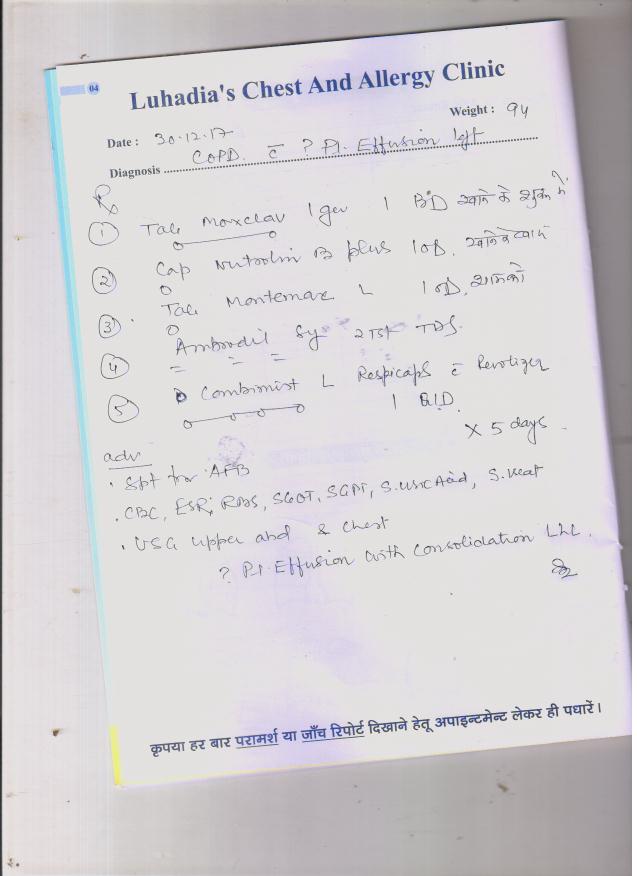 04
Luhadia's Chest And Allergy Clinic
Weight : 94
Date : 30.12.17
Diagnosis COPD. c̄ ? Pl. Effusion left
Rx
① Tab Moxclav 1 gm 1 BD खाने के शुरू में
② Cap Nutrolin B plus 1 OD. खाने के बाद
③ Tab Montemac L 1 OD. शाम को
④ Ambrodil Sy 2 TSF TDS.
⑤ Combimist L Respicaps c̄ Revolizer
1 BID.
X 5 days
adv
. Spt for AFB
. CBC, ESR, RBS, SGOT, SGPT, S. Uric Acid, S. Kreat
. USG upper abd & chest
? Pl. Effusion with consolidation LLL.
कृपया हर बार परामर्श या जाँच रिपोर्ट दिखाने हेतू अपाइन्टमेन्ट लेकर ही पधारें।